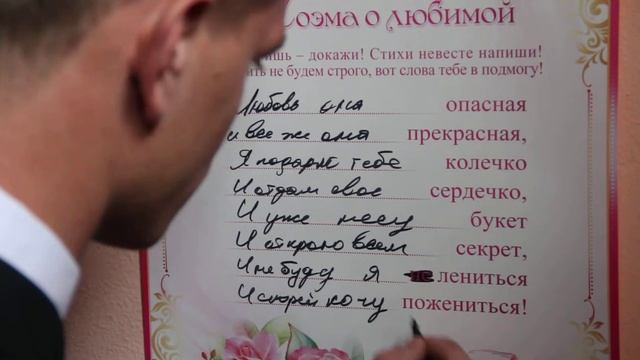 Поэма о любимой
– докажи! Стихи невесте напиши!
не будем строго, вот слова тебе в подмогу!
Любовь она опасная
и все же она прекрасная,
Я подарю тебе колечко
И отдам свое сердечко,
И уже несу букет
И открою всем секрет,
И не буду я лениться
И скорей хочу пожениться!